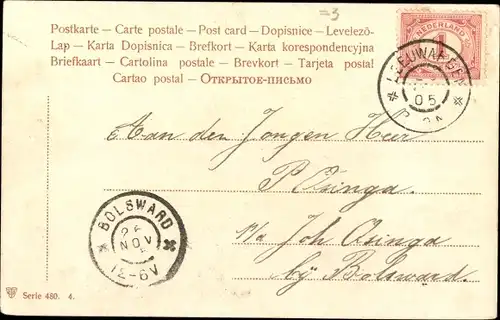 =3
Postkarte – Carte postale – Post card – Dopisnice – Levelezö-
Lap – Karta Dopisnica – Brefkort – Karta korespondencyjna
Briefkaart – Cartolina postale – Brevkort – Tarjeta postal
Cartao postal – ОТКРЫТОЕ-ПИСЬМО
NEDERLAND
1
LEEUWARDEN
05
Aan den Jongen Heer
P Osinga.
p/a Joh Osinga
bij Bolsward.
BOLSWARD
26
NOV
12-6V
Serie 480. 4.